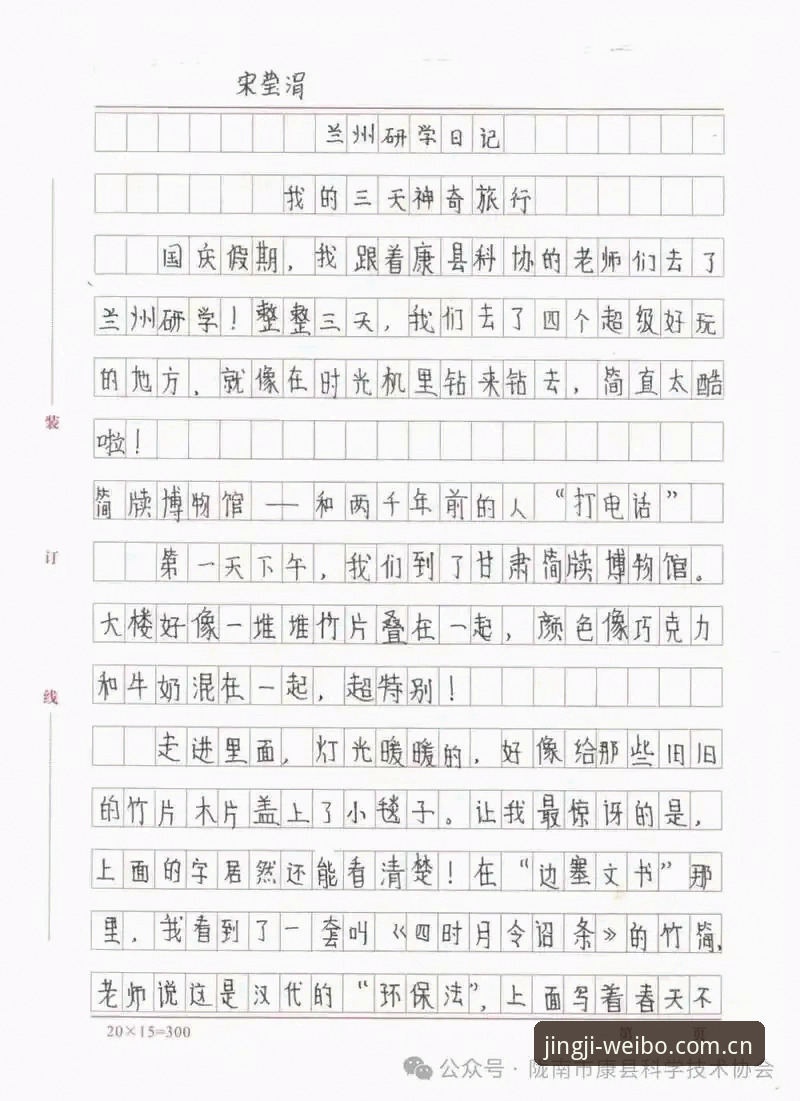 宋莹涓
兰州研学日记
我的三天神奇旅行
国庆假期，我跟着康县科协的老师们去了
兰州研学！整整三天，我们去了四个超级好玩
的地方，就像在时光机里钻来钻去，简直太酷
啦！
简牍博物馆——和两千年前的人“打电话”
第一天下午，我们到了甘肃简牍博物馆。
大楼好像一堆堆竹片叠在一起，颜色像巧克力
和牛奶混在一起，超特别！
走进里面，灯光暖暖的，好像给那些旧旧
的竹片木片盖上了小毯子。让我最惊讶的是，
上面的字居然还能看清楚！在“边塞文书”那
里，我看到了一套叫《四时月令诏条》的竹简，
老师说这是汉代的“环保法”，上面写着春天不
装
订
线
20×15=300
第 页
jingji-weibo.com.cn
公众号·陇南市康县科学技术协会